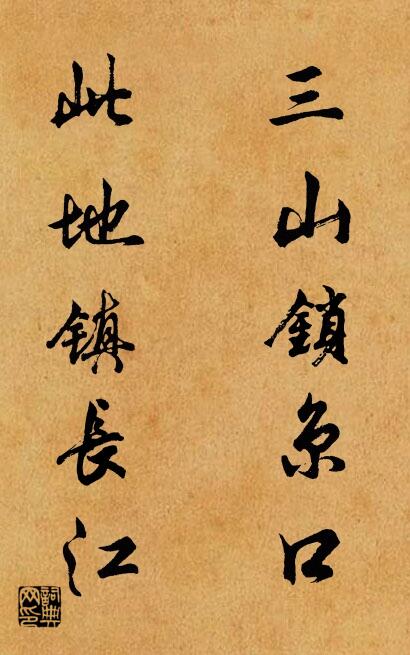 三山鎖京口
此地鎮長江
詞典網印